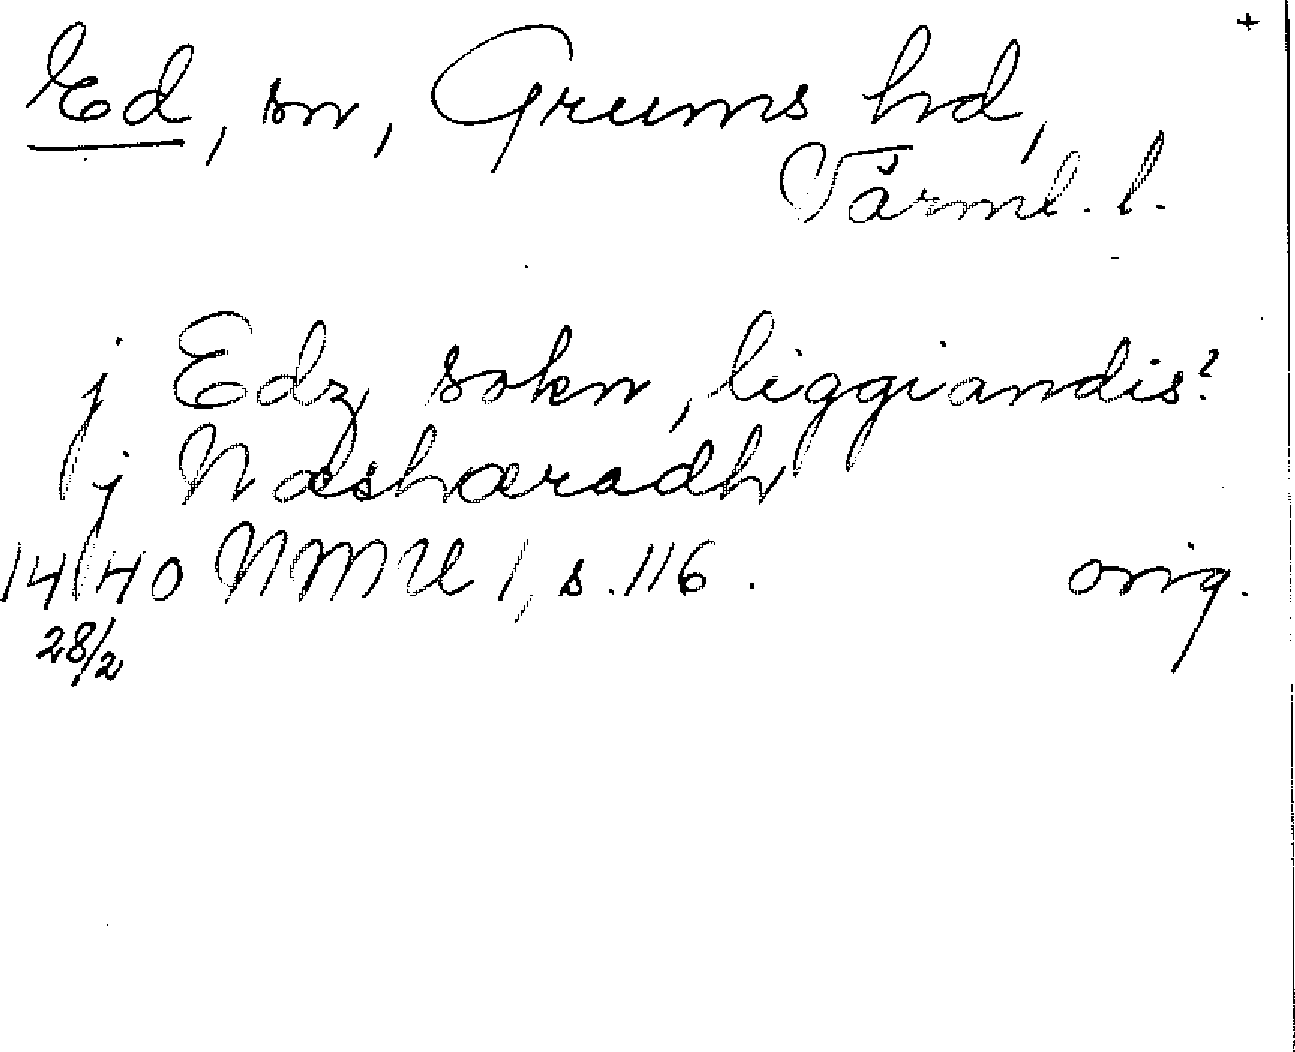 +
Ed, sn, Grums hd,
Värml. l.
j Edz sokn, liggiandis?
j Næshæradh
1440 NMU 1, s. 116. orig.
28/2